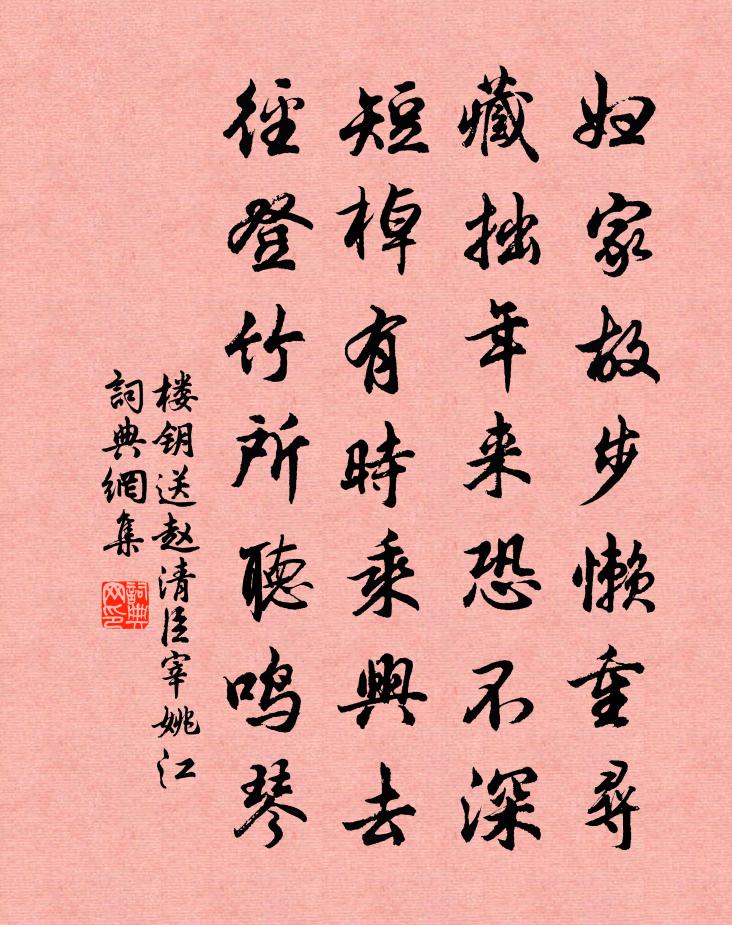 妇家故步懒重寻
藏拙年来恐不深
短棹有時乘興去
径登竹所聽鸣琴
楼钥送赵清臣宰姚江
詞典網集
詞典网印